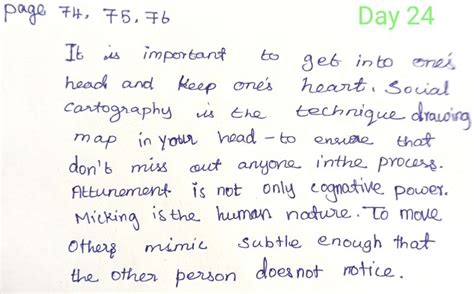 page 74, 75, 76
Day 24
It is important to get into one's
head and keep one's heart. Social
cartography is the technique drawing
map in your head - to ensure that
don't miss out anyone in the process.
Attunement is not only cognative power.
Micking is the human nature. To move
Others mimic subtle enough that
the other person does not notice.